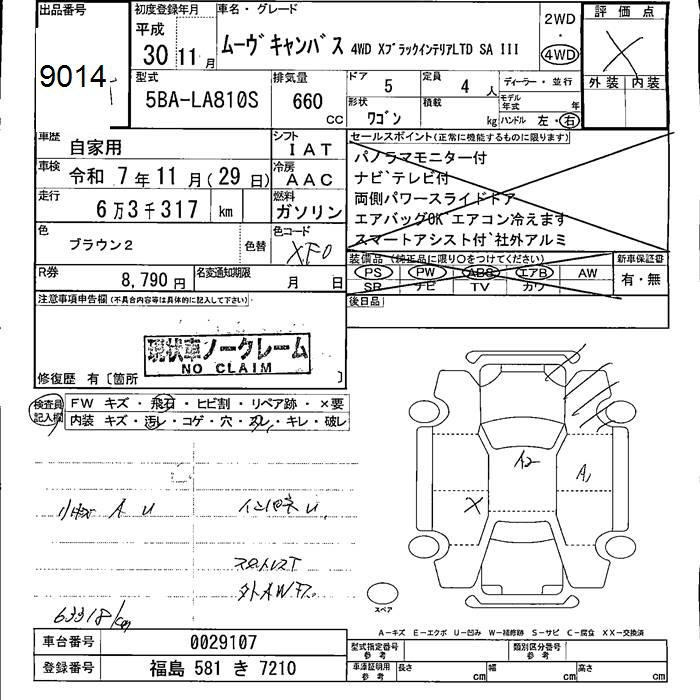 出品番号
9014
初度登録年月
平成
30 11 月
車名・グレード
ムーヴキャンバス 4WD XブラックインテリアLTD SA III
2WD
・
4WD
評価点
外装 内装
型式
5BA-LA810S
排気量
660
CC
ドア
5
定員
4 人
ディーラー・並行
形状
ワゴン
積載
kg
モデル年式
年
ハンドル 左・右
車歴
自家用
シフト
IAT
車検
令和 7 年 11 月 ( 29 日)
冷房
AAC
走行
6 万 3 千 317 km
燃料
ガソリン
色
ブラウン2
色替
色コード
XF0
R券
8,790 円
名変通知期限
月 日
セールスポイント(正常に機能するものに限ります)
パノラマモニター付
ナビテレビ付
両側パワースライドドア
エアバッグOK エアコン冷えます
スマートアシスト付 社外アルミ
装備品 (純正品に限り○をつけてください)
PS PW ABS エアB AW
SR ナビ TV カワ
新車保証書
有・無
後日品
注意事項申告欄(不具合内容等は具体的に記入して下さい)
現状車ノークレーム
NO CLAIM
修復歴 有〔箇所 〕
検査員記入欄
FW キズ・飛石・ヒビ割・リペア跡・×要
内装 キズ・汚レ・コゲ・穴・スレ・キレ・破レ
A U
63318/km
A1
スペア
A−キズ E−エクボ U−凹み W−補修跡 S−サビ C−腐食 XX−交換済
車台番号
0029107
登録番号
福島 581 き 7210
型式指定番号
参考
類別区分番号
参考
車庫証明用
参考
長さ
cm
幅
cm
高さ
cm